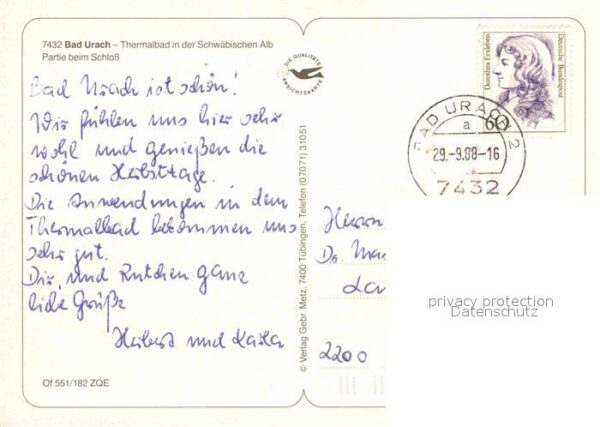 7432 Bad Urach – Thermalbad in der Schwäbischen Alb
Partie beim Schloß
Bad Urach ist schön!
Wir fühlen uns hier sehr
wohl und genießen die
schönen Herbsttage.
Die Anwendungen in dem
Thermalbad bekommen uns
sehr gut.
Dir und Rutchen ganz
liebe Grüße
Herbert und
Of 551/182 ZQE
DIE QUALITÄTS
ANSICHTSKARTE
© Verlag Gebr. Metz, 7400 Tübingen, Telefon (07071) 31051
Dorothea Erxleben
Deutsche Bundespost
60
BAD URACH 2
a
29.-9.88-16
7432
Herrn
Dr.
2200
privacy protection
Datenschutz